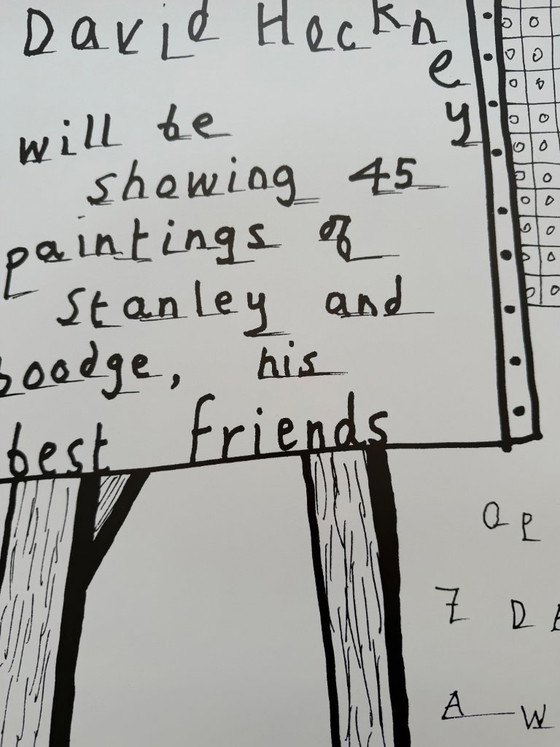 David Hockney
will be
showing 45
paintings of
Stanley and
boodge, his
best friends
O P
7 D
A W